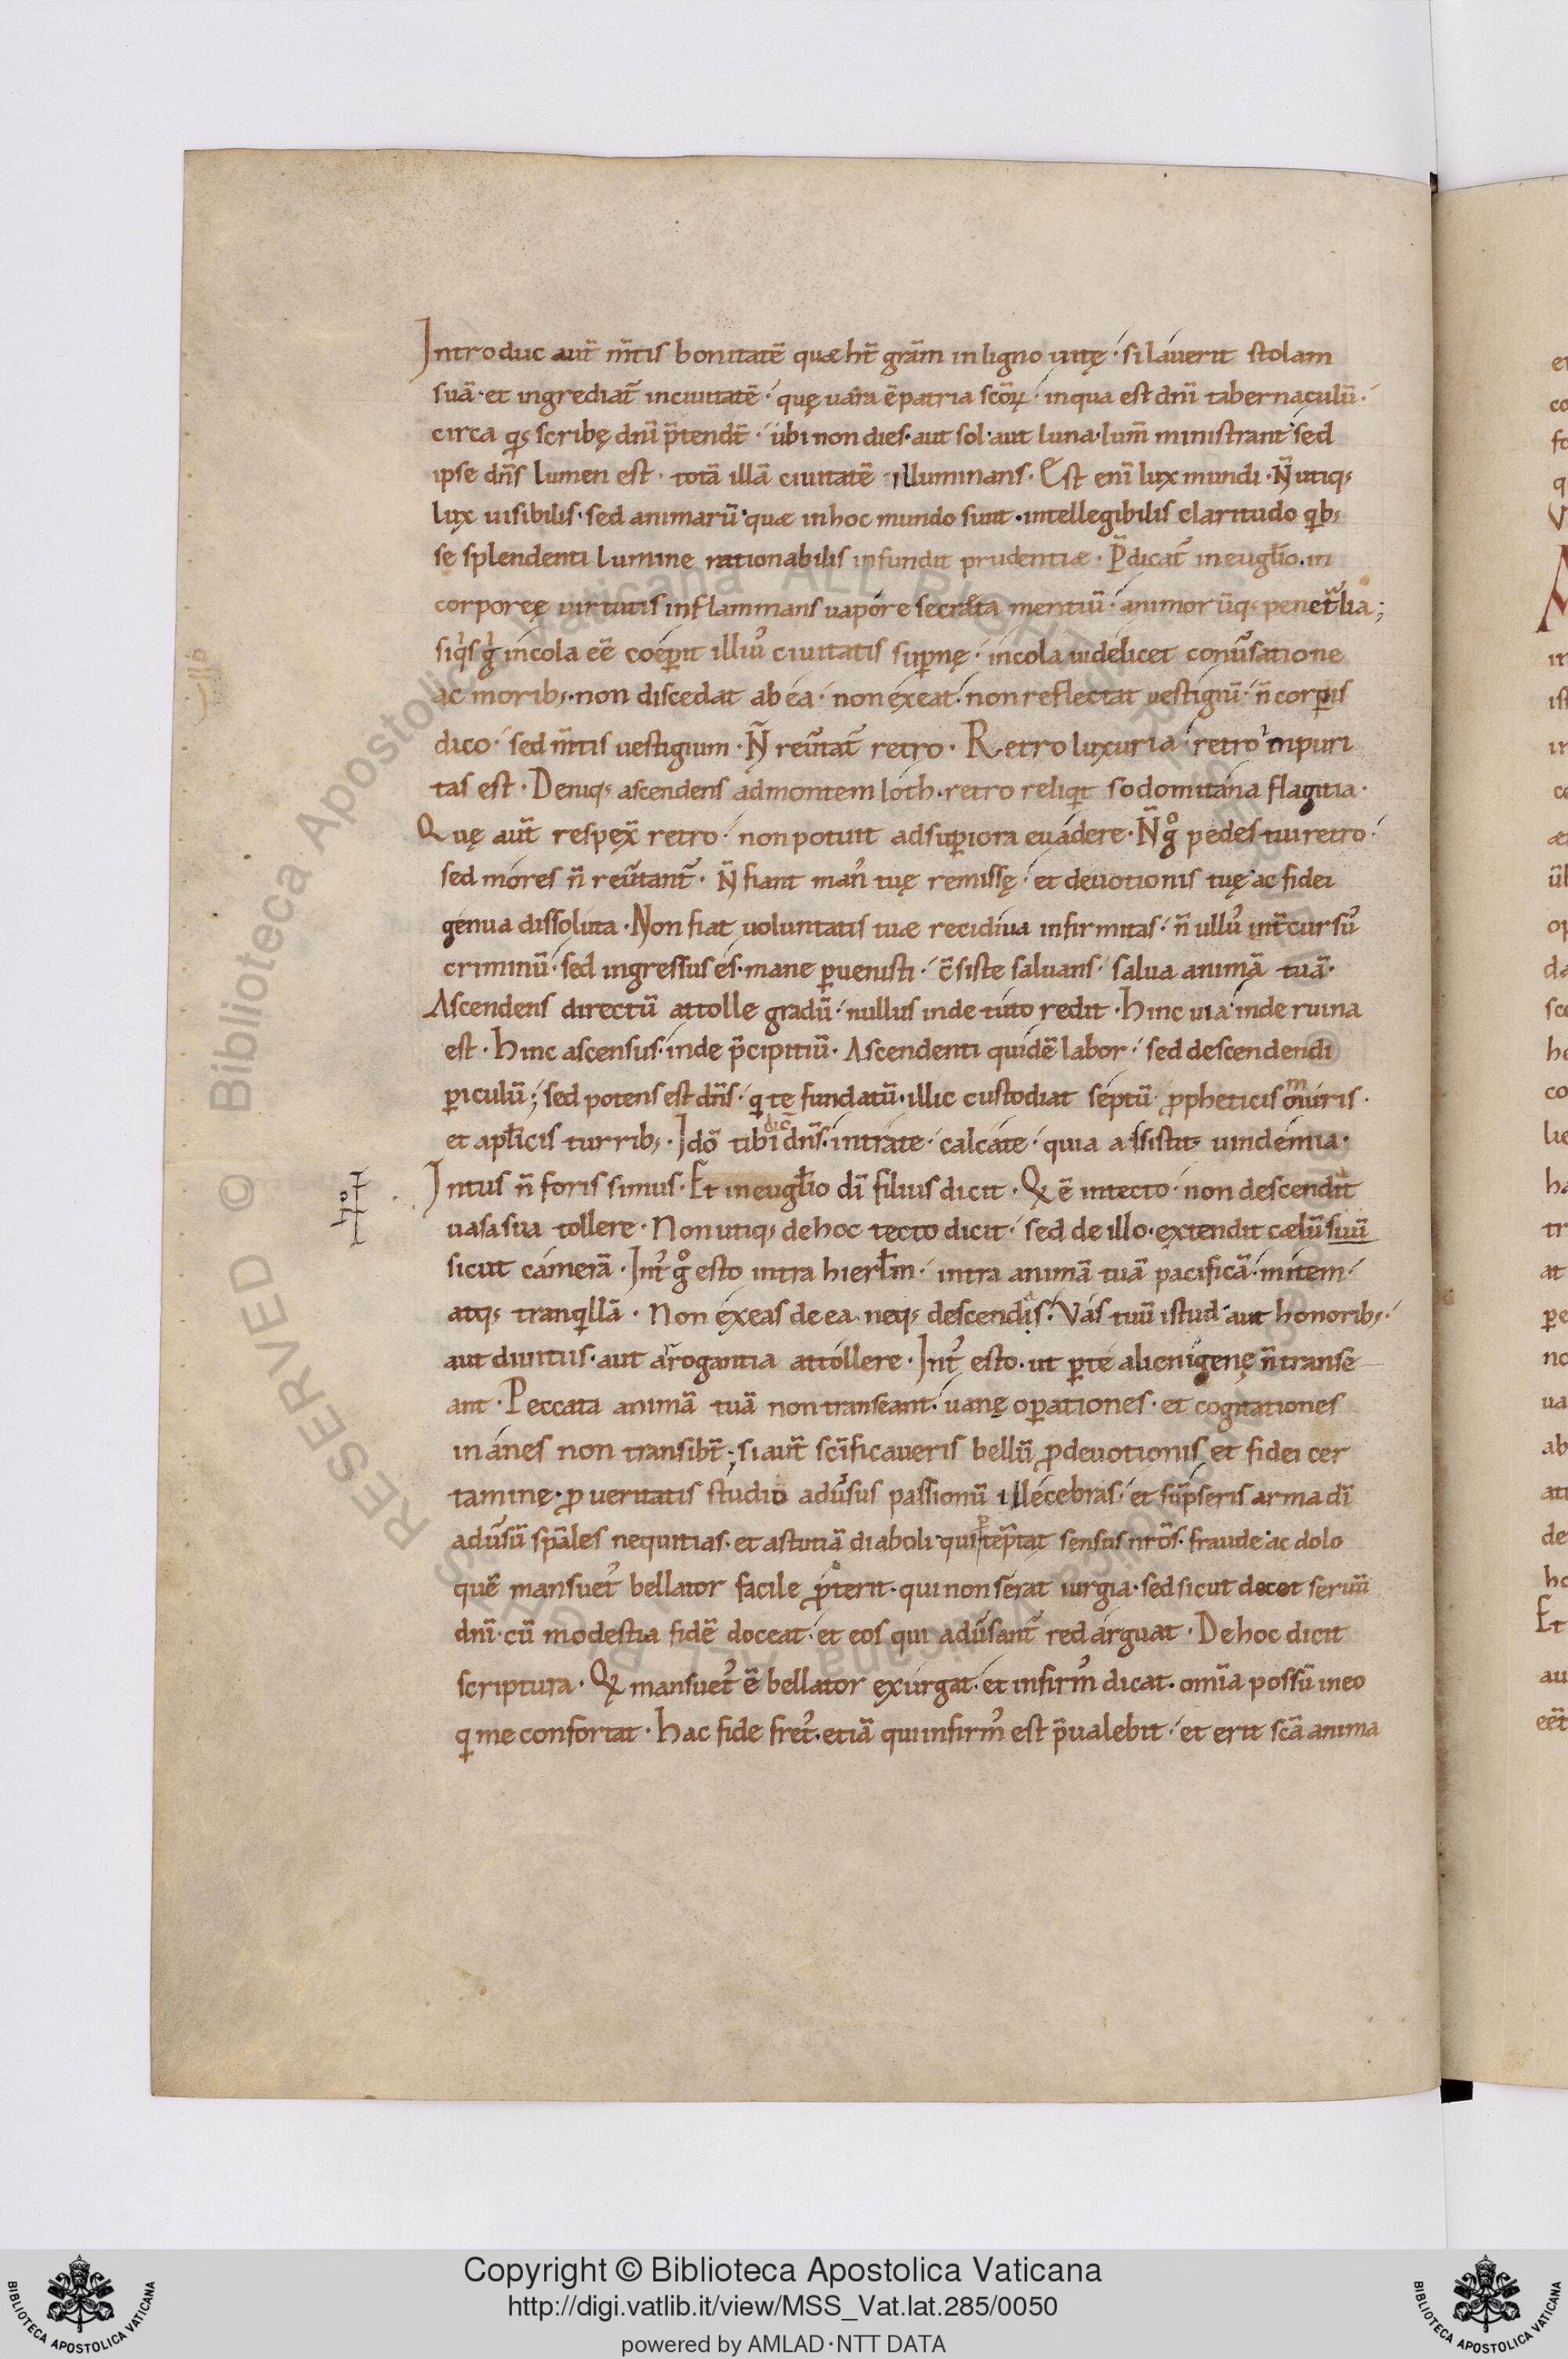 Introduc aut̄ m̄tis bonitatē quæ ht̄ grām in ligno uitę · si lauerit stolam
suā · et ingrediat᷑ in ciuitatē · quę uāra ē patria scōꝝ · in qua est dnī tabernaculū ·
circa qđ scribę dnī p̄tendt̄ · ubi non dies · aut sol · aut luna · lum̄ ministrant · sed
ipse dn̄s lumen est · totā illā ciuitatē illuminans · Est enī lux mundi · N̄ utiqꝫ
lux uisibilis · sed animarū quæ in hoc mundo sunt · intellegibilis claritudo qbꝫ
se splendenti lumine rationabilis infundit prudentiæ · P̄dicat᷑ in euglīo · in
corporeę uirtutis inflammans uapore secreta mentiū · animorūqꝫ penet̄lia ;
siqͥs gͥ incola eē coeperit illiꝰ ciuitatis suꝑnę · incola uidelicet conūsatione
ac moribꝫ · non discedat ab ea · non exeat · non reflectat uestigiū · n̄ corꝑis
dico · sed m̄tis uestigium · N̄ reūtat᷑ retro · Retro luxuria · retro inpuri
tas est · Deniqꝫ ascendens ad montem loth · retro reliqͥt sodomitana flagitia ·
Quę aut̄ respex̄ retro · non potuit ad suꝑiora euadere · N̄ gͦ pedes tui retro ·
sed mores n̄ reūtant᷑ · N̄ fiant manꝰ tuę remissę · et deuotionis tuę ac fidei
genua dissoluta · Non fiat uoluntatis tuæ recidiua infirmitas · n̄ ullꝰ int̄cursꝰ
criminū · sed ingressus es · mane ꝑuenisti · c̄siste saluans · salua animā tuā ·
Ascendens directū attolle gradū · nullus inde tuto redit · Hinc uia inde ruina
est · Hinc ascensus · inde p̄cipitiū · Ascendenti quidē labor · sed descendendi
ꝑiculū ; sed potens est dn̄s · qͥ te fundatū · illic custodiat septū ꝓpheticis muris ·
et aplīcis turribꝫ · Idō tibi dic̄ dn̄s · intrate · calcate · quia assistit uindemia ·
Intus n̄ foris simus · Et in euglīo dī filius dicit · Qͥ ē in tecto · non descendat
uasa sua tollere · Non utiqꝫ de hoc tecto dicit · sed de illo · extendit cælū suū
sicut camerā · Intꝰ gͦ esto intra hierłm · intra animā tuā pacificā · mitem ·
atqꝫ tranqͥllā · Non exeas de ea neqꝫ descendas · Vas tuū istud aut honoribꝫ ·
aut diuitiis · aut arrogantia attollere · Intꝰ esto · ut ꝑ te alienigenę n̄ transe
ant · Peccata animā tuā non transeant · uanę oꝑationes · et cogitationes
inanes non transibt̄ · si aut̄ scīficaueris bellū ꝓ deuotionis et fidei cer
tamine · ꝓ ueritatis studio adūsus passionū illecebras · et sūpseris arma dī
adūsū spāles nequitias · et astutiā diaboli qui tēptat sensus nrōs · fraude ac dolo
quē mansuetꝰ bellator facile ꝓterit · qui non serat iurgia · sed sicut docet seruū
dnī · cū modestia fidē doceat · et eos qui adūsant᷑ redarguat · De hoc dicit
scriptura · Qͥ mansuetꝰ ē bellator exurgat · et infirmꝰ dicat · omīa possū in eo
qͥ me confortat · Hac fide fretꝰ · etiā qui infirmꝰ est p̄ualebit · et erit scā anima
Copyright © Biblioteca Apostolica Vaticana
http://digi.vatlib.it/view/MSS_Vat.lat.285/0050
powered by AMLAD·NTT DATA